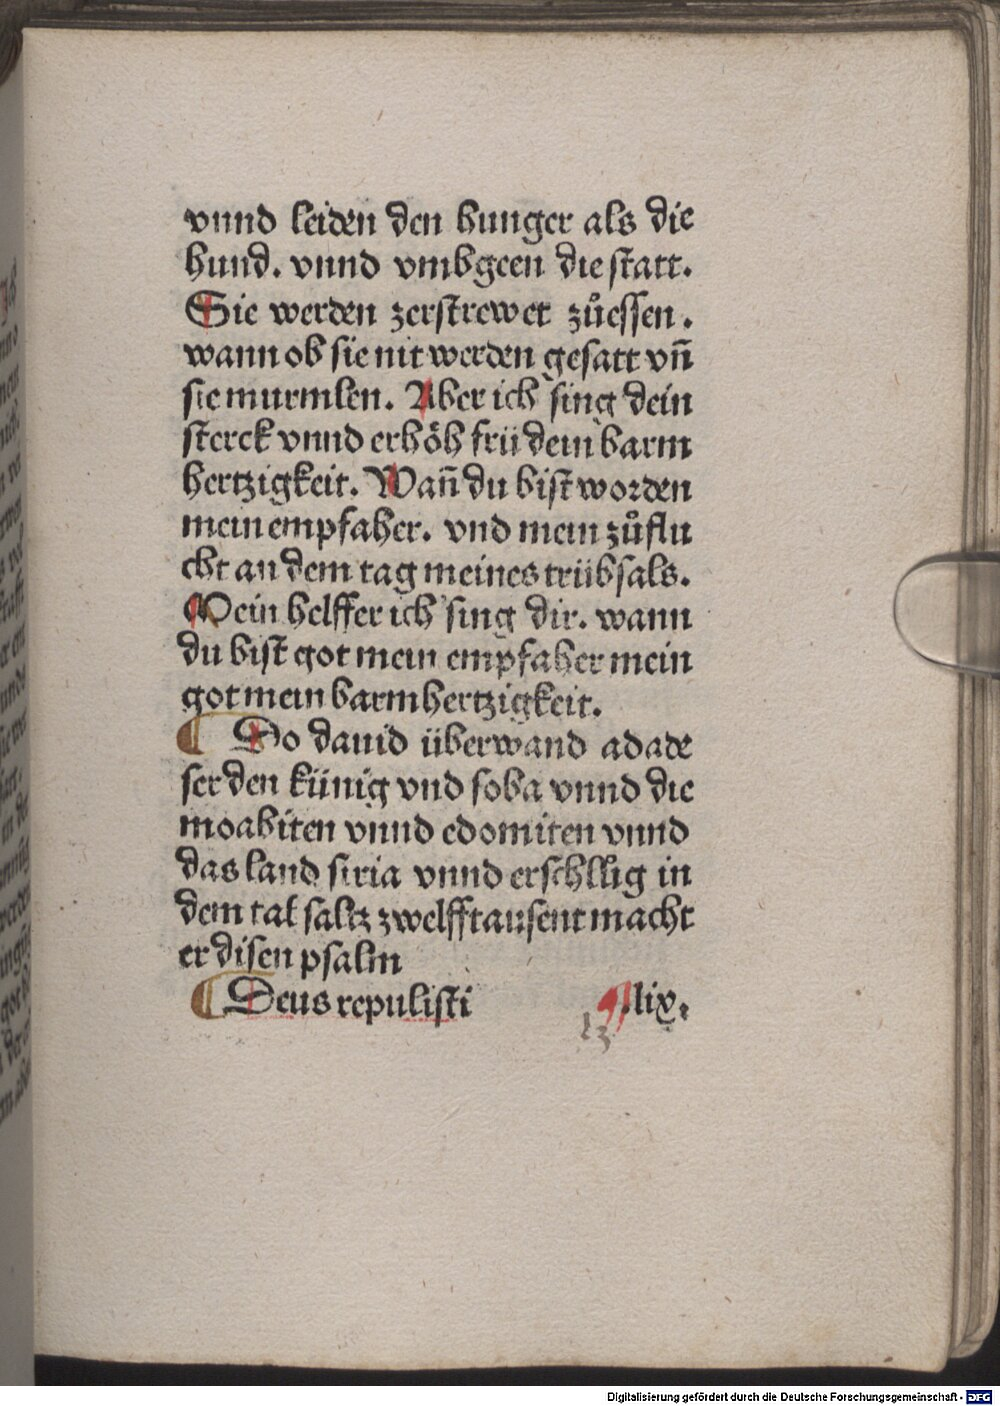 vnnd leiden den hunger als die
hund. vnnd vmbgeen die statt.
Sie werden zerstrewet zůessen.
wann ob sie nit werden gesatt vn̄
sie murmlen. Aber ich sing dein
sterck vnnd erhöh frü dein barm
hertzigkeit. Wan̄ du bist worden
mein empfaher. vnd mein zůflu
cht an dem tag meines trübsals.
Mein helffer ich sing dir. wann
du bist got mein empfaher mein
got mein barmhertzigkeit.
¶ Do dauid überwand adade
ser den künig vnd soba vnnd die
moabiten vnnd edomiten vnnd
das land siria vnnd erschlůg in
dem tal saltz zwelfftausent macht
er disen psalm
¶ Deus repulisti ¶ .lix.
Digitalisierung gefördert durch die Deutsche Forschungsgemeinschaft - DFG